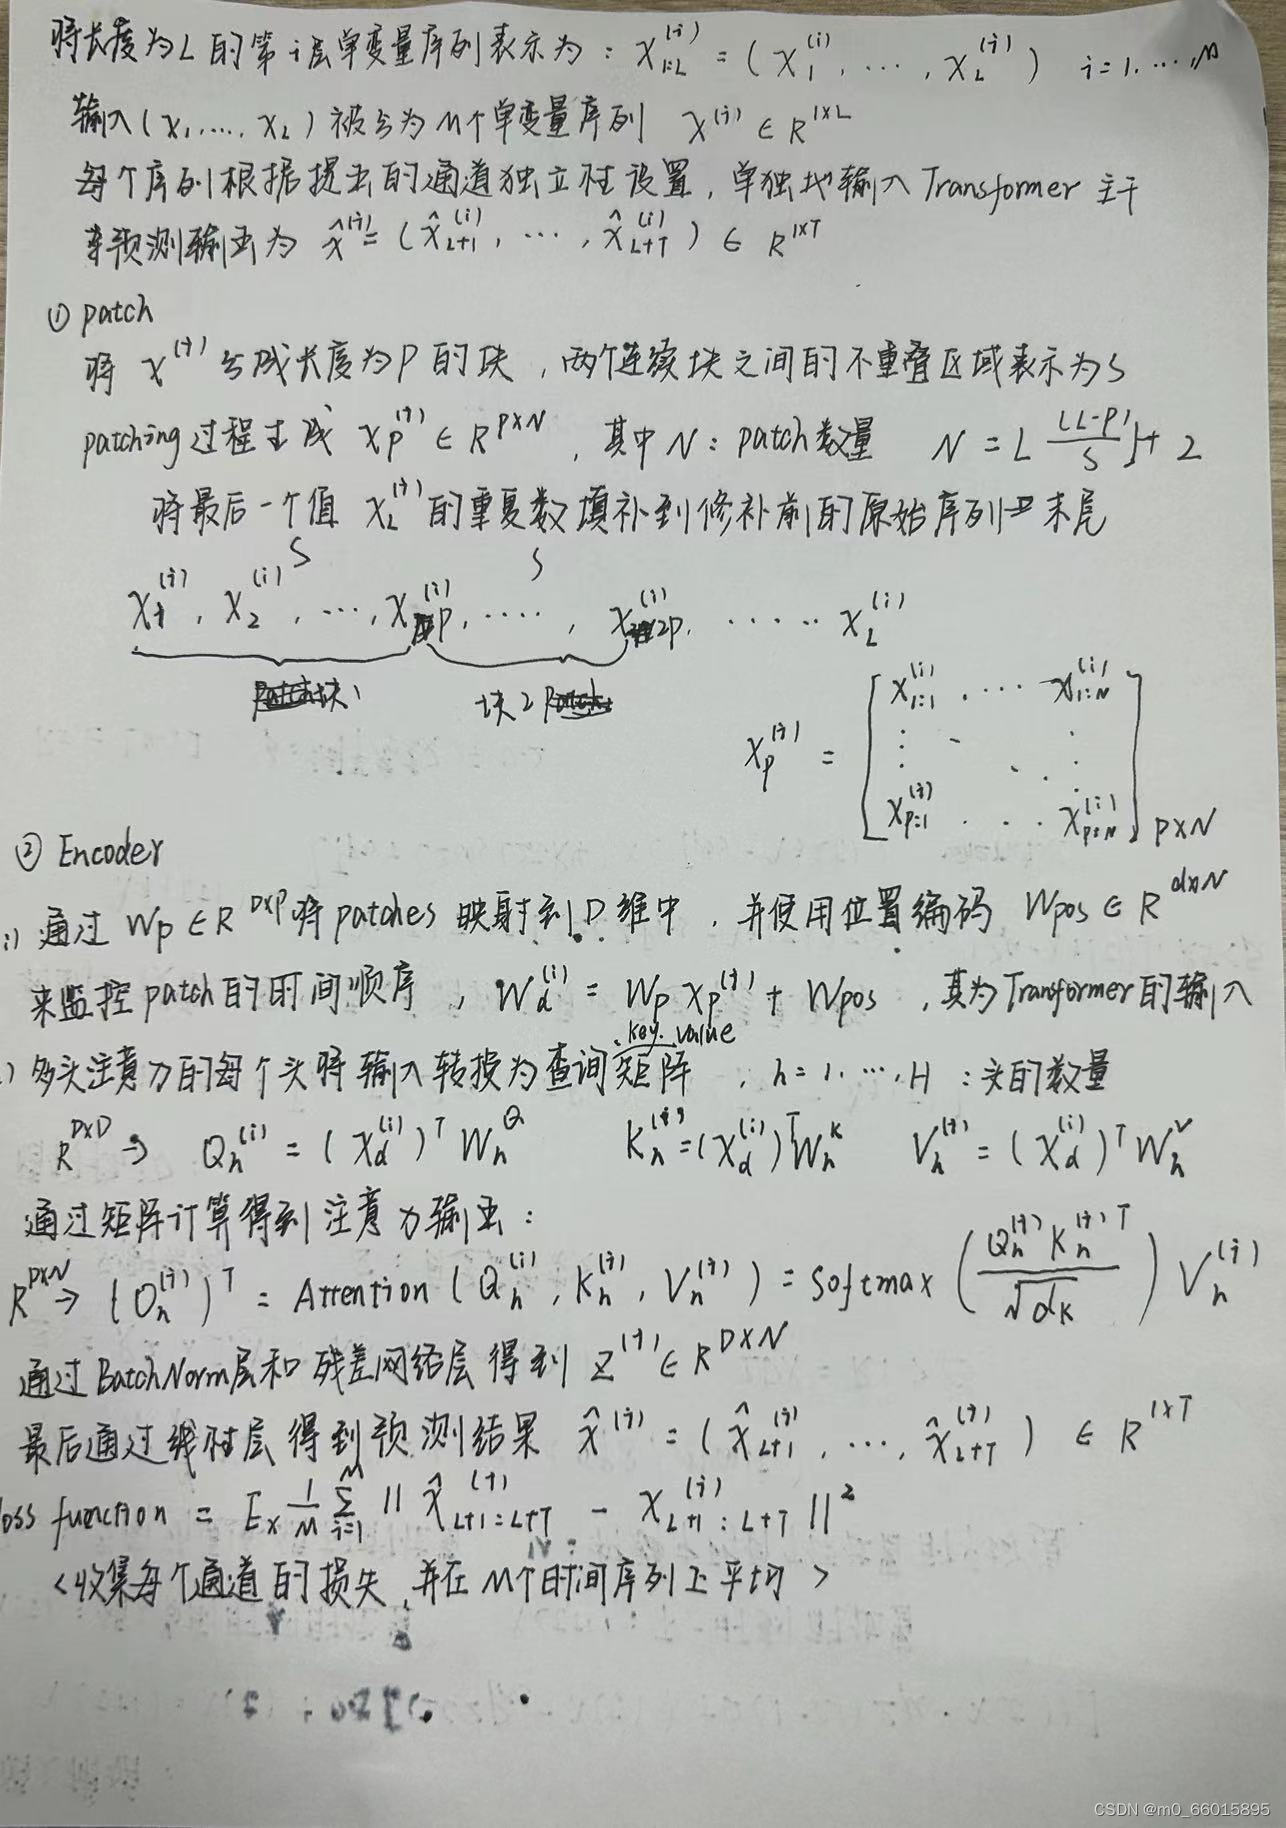 将长度为L的第i层单变量序列表示为：X_{1:L}^{(i)} = (X_1^{(i)}, ..., X_L^{(i)}) i=1,...,M
输入(X_1,...,X_L)被分为M个单变量序列 X^{(i)} ∈ R^{1×L}
每个序列根据提出的通道独立性设置，单独地输入Transformer主干
来预测输出为 \hat{x}^{(i)} = (\hat{x}_{L+1}^{(i)}, ..., \hat{x}_{L+T}^{(i)}) ∈ R^{1×T}
① patch
将 X^{(i)} 分成长度为P的块，两个连续块之间的不重叠区域表示为S
patching过程生成 X_P^{(i)} ∈ R^{P×N}，其中N：patch数量 N = ⌊\frac{(L-P)}{S}⌋+2
将最后一个值 X_L^{(i)} 的重复数填补到修补前的原始序列末尾
S S
X_1^{(i)}, X_2^{(i)}, ..., X_P^{(i)}, ...., X_{2P}^{(i)}, ...... X_L^{(i)}
块1 块2
X_P^{(i)} = [X_{1:1}^{(i)} .... X_{1:N}^{(i)}
X_{P:1}^{(i)} ... X_{P:N}^{(i)}]_{P×N}
② Encoder
1) 通过 W_P ∈ R^{D×P} 将patches映射到D维中，并使用位置编码 W_{pos} ∈ R^{d×N}
来监控patch的时间顺序，W_d^{(i)} = W_P X_P^{(i)} + W_{pos}，其为Transformer的输入
key. value
) 多头注意力的每个头将输入转换为查询矩阵，h=1,...,H：头的数量
R^{D×D} → Q_h^{(i)} = (X_d^{(i)})^T W_h^Q K_h^{(i)} = (X_d^{(i)})^T W_h^K V_h^{(i)} = (X_d^{(i)})^T W_h^V
通过矩阵计算得到注意力输出：
R^{D×N} → (O_h^{(i)})^T = Attention(Q_h^{(i)}, K_h^{(i)}, V_h^{(i)}) = Softmax(\frac{Q_h^{(i)} K_h^{(i)T}}{\sqrt{d_K}}) V_h^{(i)}
通过BatchNorm层和残差网络层得到 Z^{(i)} ∈ R^{D×N}
最后通过线性层得到预测结果 \hat{x}^{(i)} = (\hat{x}_{L+1}^{(i)}, ..., \hat{x}_{L+T}^{(i)}) ∈ R^{1×T}
loss function = E_X \frac{1}{M} \sum_{i=1}^{M} ||\hat{x}_{L+1:L+T}^{(i)} - X_{L+1:L+T}^{(i)}||^2
<收集每个通道的损失，并在M个时间序列上平均>
CSDN @m0_66015895